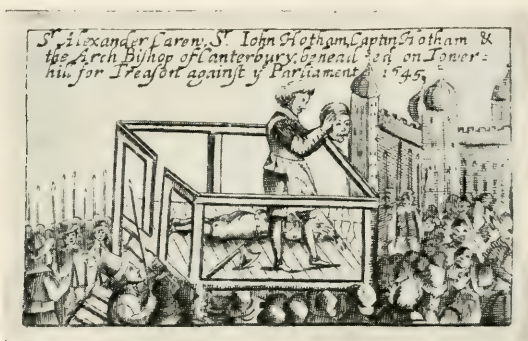 Sr. Alexander Carew, Sr. Iohn Hotham, Captin Hotham &
the Arch Bishop of Canterbury, beheaded on Tower=
hill for Treason against ye Parliament 1645,